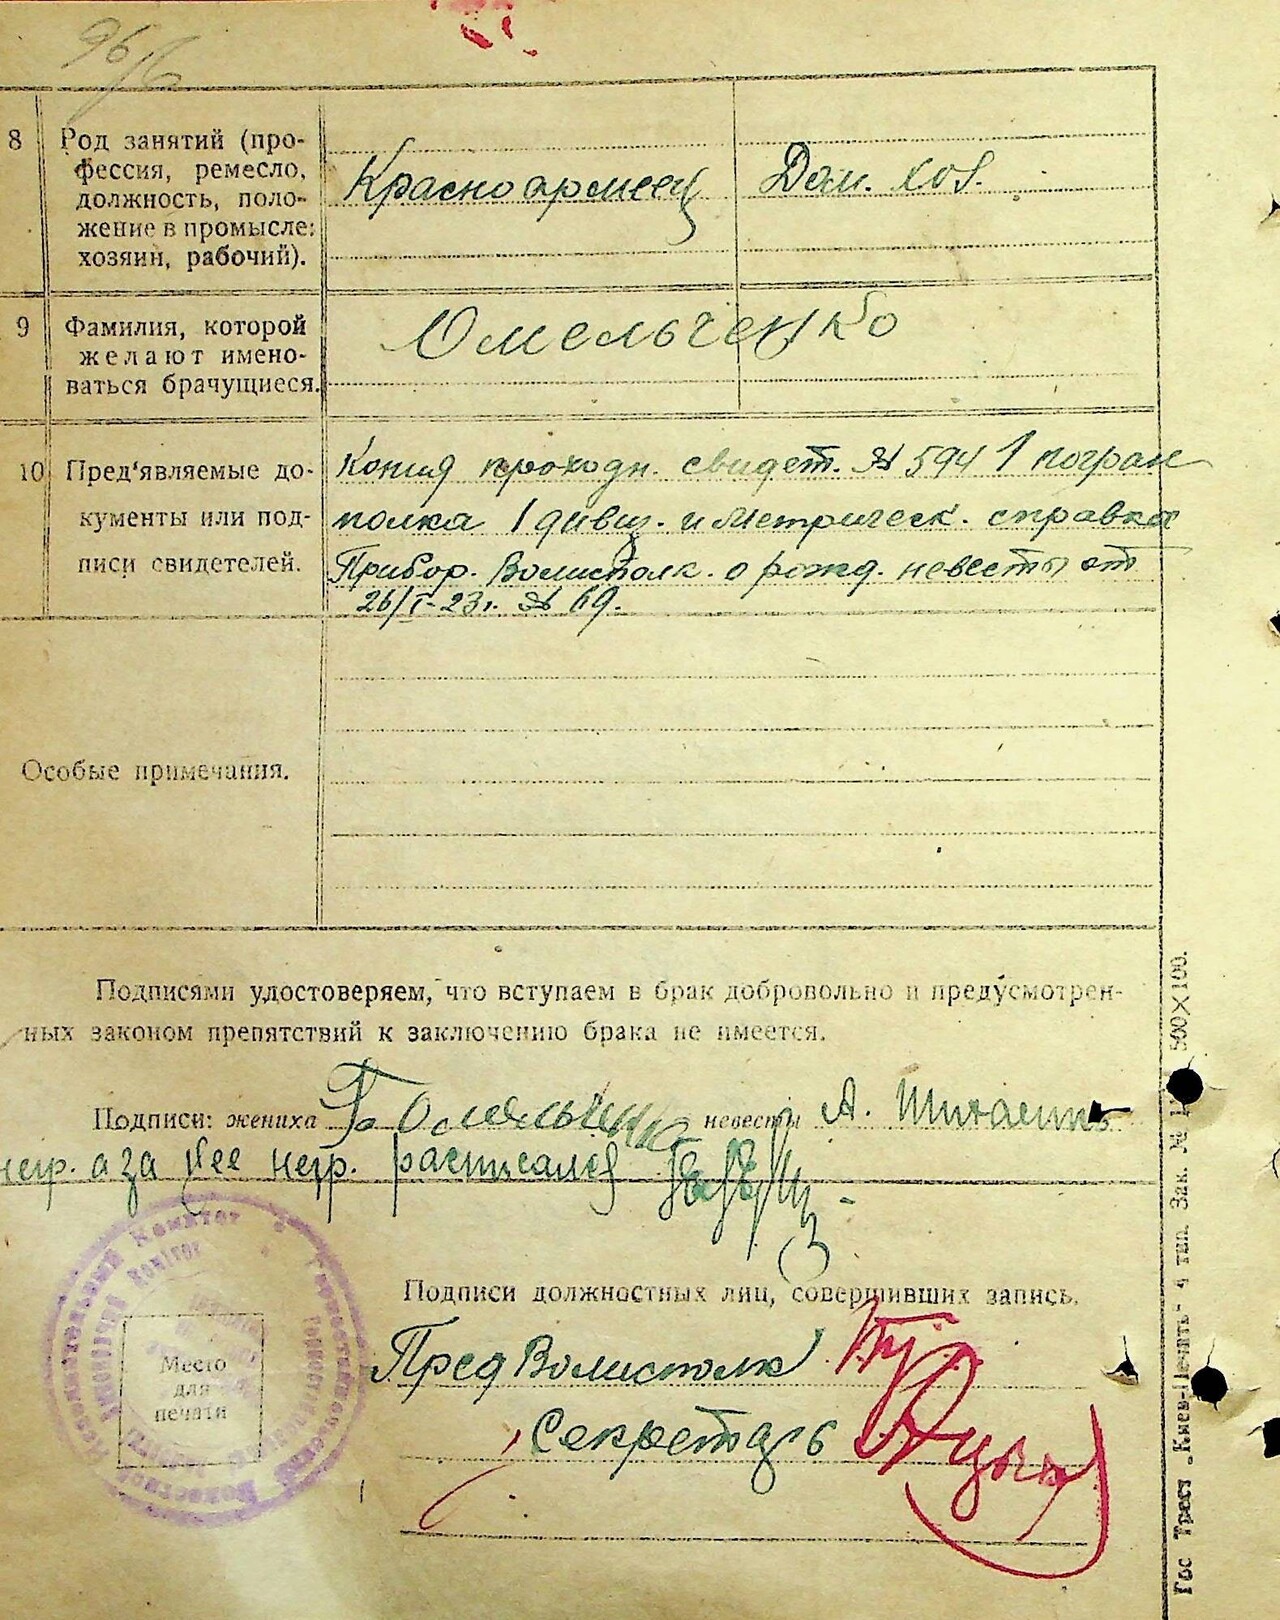 96/б
8 Род занятий (про-
фессия, ремесло,
должность, поло-
жение в промысле:
хозяин, рабочий).
Красноармеец
Дом. хоз.
9 Фамилия, которой
желают имено-
ваться брачущиеся.
Омельченко
10 Пред'являемые до-
кументы или под-
писи свидетелей.
Копия проходн. свидет. № 594 1 погран
полка 1 дивиз. и Метрическ. справка
Прибор. Волисполк. о рожд. невесты от
26/I-23 г. № 69.
Особые примечания.
Подписями удостоверяем, что вступаем в брак добровольно и предусмотрен-
ных законом препятствий к заключению брака не имеется.
Подписи: жениха Омельченко невесты А.
негр. а за нее негр. расписался
Подписи должностных лиц, совершивших запись.
Пред Волисполк
Секретарь
Место
для
печати
Гос Трест „Киев-Печать“ 4 тип. Зак. № 500×100.